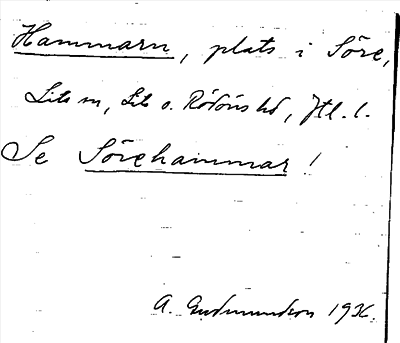 Hammarn, plats i Söre,
Lits sn, Lits o. Rödöns hd, Jtl. l.
Se Sörehammar!
A. Gudmundson 1936.